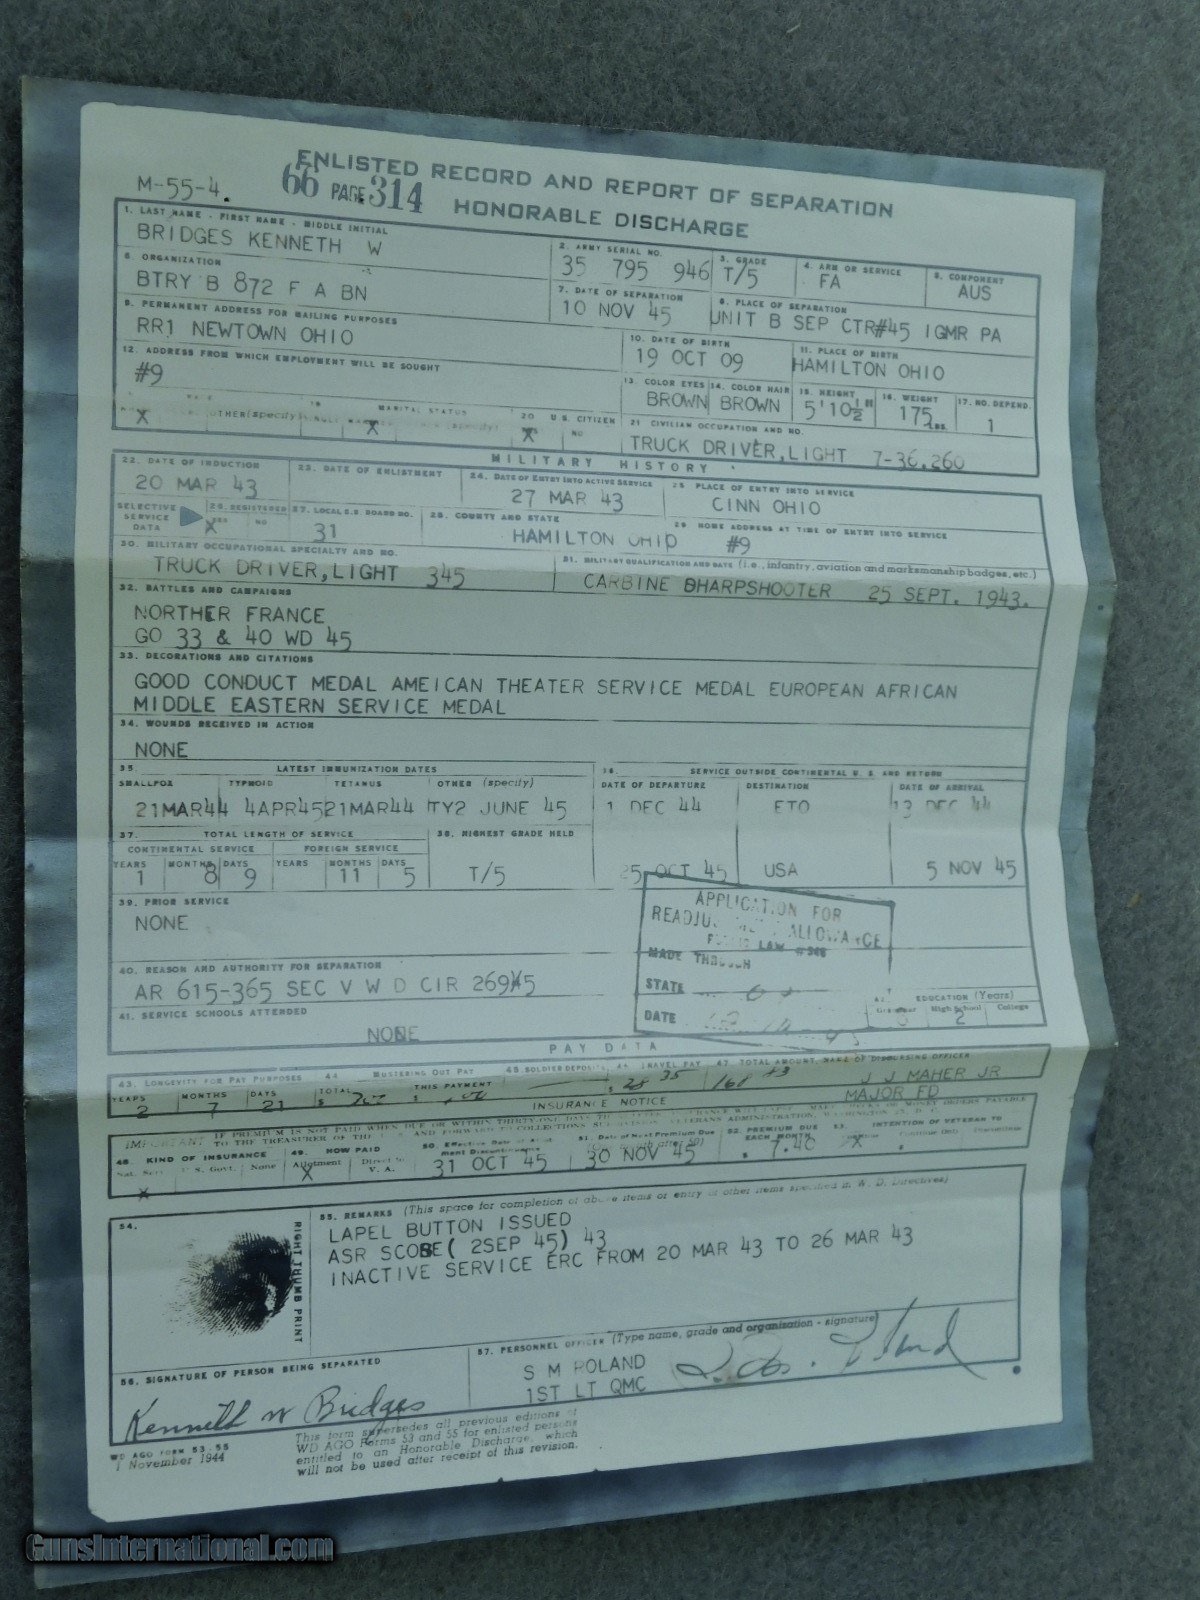 ENLISTED RECORD AND REPORT OF SEPARATION
M-55-4. 66 PAGE 314 HONORABLE DISCHARGE
1. LAST NAME - FIRST NAME - MIDDLE INITIAL
BRIDGES KENNETH W
2. ARMY SERIAL NO.
35 795 946
3. GRADE
T/5
4. ARM OR SERVICE
FA
5. COMPONENT
AUS
6. ORGANIZATION
BTRY B 872 F A BN
7. DATE OF SEPARATION
10 NOV 45
8. PLACE OF SEPARATION
UNIT B SEP CTR#45 IGMR PA
9. PERMANENT ADDRESS FOR MAILING PURPOSES
RR1 NEWTOWN OHIO
10. DATE OF BIRTH
19 OCT 09
11. PLACE OF BIRTH
HAMILTON OHIO
12. ADDRESS FROM WHICH EMPLOYMENT WILL BE SOUGHT
#9
13. COLOR EYES
BROWN
14. COLOR HAIR
BROWN
15. HEIGHT
5'10½"
16. WEIGHT
175 LBS.
17. NO. DEPEND.
1
MARITAL STATUS
OTHER (specify)
X X
20 U.S. CITIZEN
X NO
21 CIVILIAN OCCUPATION AND NO.
TRUCK DRIVER, LIGHT 7-36.260
MILITARY HISTORY
22. DATE OF INDUCTION
20 MAR 43
23. DATE OF ENLISTMENT
24. DATE OF ENTRY INTO ACTIVE SERVICE
27 MAR 43
25. PLACE OF ENTRY INTO SERVICE
CINN OHIO
SELECTIVE SERVICE DATA
26. REGISTERED
YES NO
X
27. LOCAL S.S. BOARD NO.
31
28. COUNTY AND STATE
HAMILTON OHIO
29 HOME ADDRESS AT TIME OF ENTRY INTO SERVICE
#9
30. MILITARY OCCUPATIONAL SPECIALTY AND NO.
TRUCK DRIVER, LIGHT 345
31. MILITARY QUALIFICATION AND DATE (i.e., infantry, aviation and marksmanship badges, etc.)
CARBINE SHARPSHOOTER 25 SEPT. 1943.
32. BATTLES AND CAMPAIGNS
NORTHER FRANCE
GO 33 & 40 WD 45
33. DECORATIONS AND CITATIONS
GOOD CONDUCT MEDAL AMEICAN THEATER SERVICE MEDAL EUROPEAN AFRICAN
MIDDLE EASTERN SERVICE MEDAL
34. WOUNDS RECEIVED IN ACTION
NONE
35. LATEST IMMUNIZATION DATES
SMALLPOX TYPHOID TETANUS OTHER (specify)
21MAR44 4APR45 21MAR44 TY2 JUNE 45
36. SERVICE OUTSIDE CONTINENTAL U.S. AND RETURN
DATE OF DEPARTURE DESTINATION DATE OF ARRIVAL
1 DEC 44 ETO 13 DEC 44
25 OCT 45 USA 5 NOV 45
37. TOTAL LENGTH OF SERVICE
CONTINENTAL SERVICE FOREIGN SERVICE
YEARS MONTHS DAYS YEARS MONTHS DAYS
1 8 9 11 5
38. HIGHEST GRADE HELD
T/5
39. PRIOR SERVICE
NONE
APPLICATION FOR
ALLOWANCE
LAW
MADE THROUGH
STATE
DATE
40. REASON AND AUTHORITY FOR SEPARATION
AR 615-365 SEC V W D CIR 269 45
41. SERVICE SCHOOLS ATTENDED
NONE
EDUCATION (Years)
Grammar High School College
2
PAY DATA
43. LONGEVITY FOR PAY PURPOSES
YEARS MONTHS DAYS
2 7 21
44 MUSTERING OUT PAY
TOTAL THIS PAYMENT
$ $
45 SOLDIER DEPOSITS
46 TRAVEL PAY
$ 28 35
47. TOTAL AMOUNT, NAME OF DISBURSING OFFICER
J J MAHER JR
MAJOR FD
INSURANCE NOTICE
IMPORTANT IF PREMIUM IS NOT PAID WHEN DUE OR WITHIN THIRTY-ONE DAYS
48. KIND OF INSURANCE
Nat. Serv. U.S. Govt. None
X
49. HOW PAID
Allotment Direct to V. A.
X
50. Effective Date of Allotment Discontinuance
31 OCT 45
51. Date of Next Premium Due
30 NOV 45
52. PREMIUM DUE EACH MONTH
$ 7.40
53. INTENTION OF VETERAN TO
X
54.
RIGHT THUMB PRINT
55. REMARKS (This space for completion of above items or entry of other items specified in W. D. Directives)
LAPEL BUTTON ISSUED
ASR SCORE ( 2SEP 45) 43
INACTIVE SERVICE ERC FROM 20 MAR 43 TO 26 MAR 43
56. SIGNATURE OF PERSON BEING SEPARATED
Kenneth W Bridges
57. PERSONNEL OFFICER (Type name, grade and organization - signature)
S M POLAND
1ST LT QMC
WD AGO FORM 53-55
1 November 1944
This form supersedes all previous editions of
WD AGO Forms 53 and 55 for enlisted persons
entitled to an Honorable Discharge, which
will not be used after receipt of this revision.
GunsInternational.com